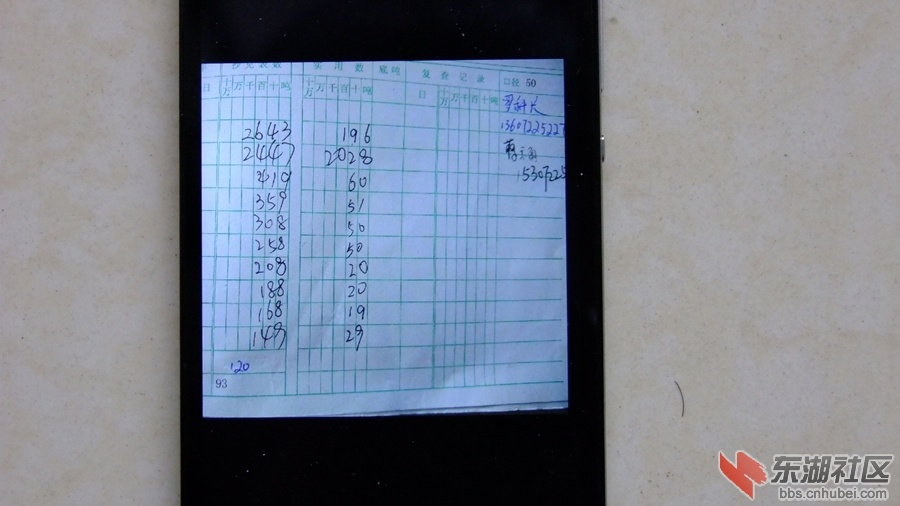 抄见表数 实用数 底吨 复查记录 口径 50
日 十万 万 千 百 十 吨 十万 万 千 百 十 吨 日 十万 万 千 百 十 吨
2643 196
2447 2028
419 60
359 51
308 50
258 50
208 20
188 20
168 19
149 29
120
93
科长
13607225227
15307225
东湖社区
bbs.cnhubei.com